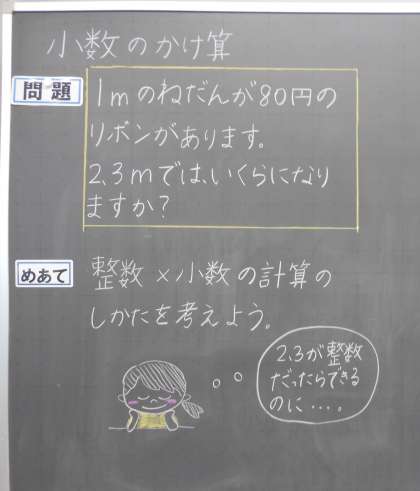 小数のかけ算
問題
1mのねだんが80円の
リボンがあります。
2.3mでは、いくらになり
ますか?
めあて
整数×小数の計算の
しかたを考えよう。
2.3が整数
だったらできる
のに…。